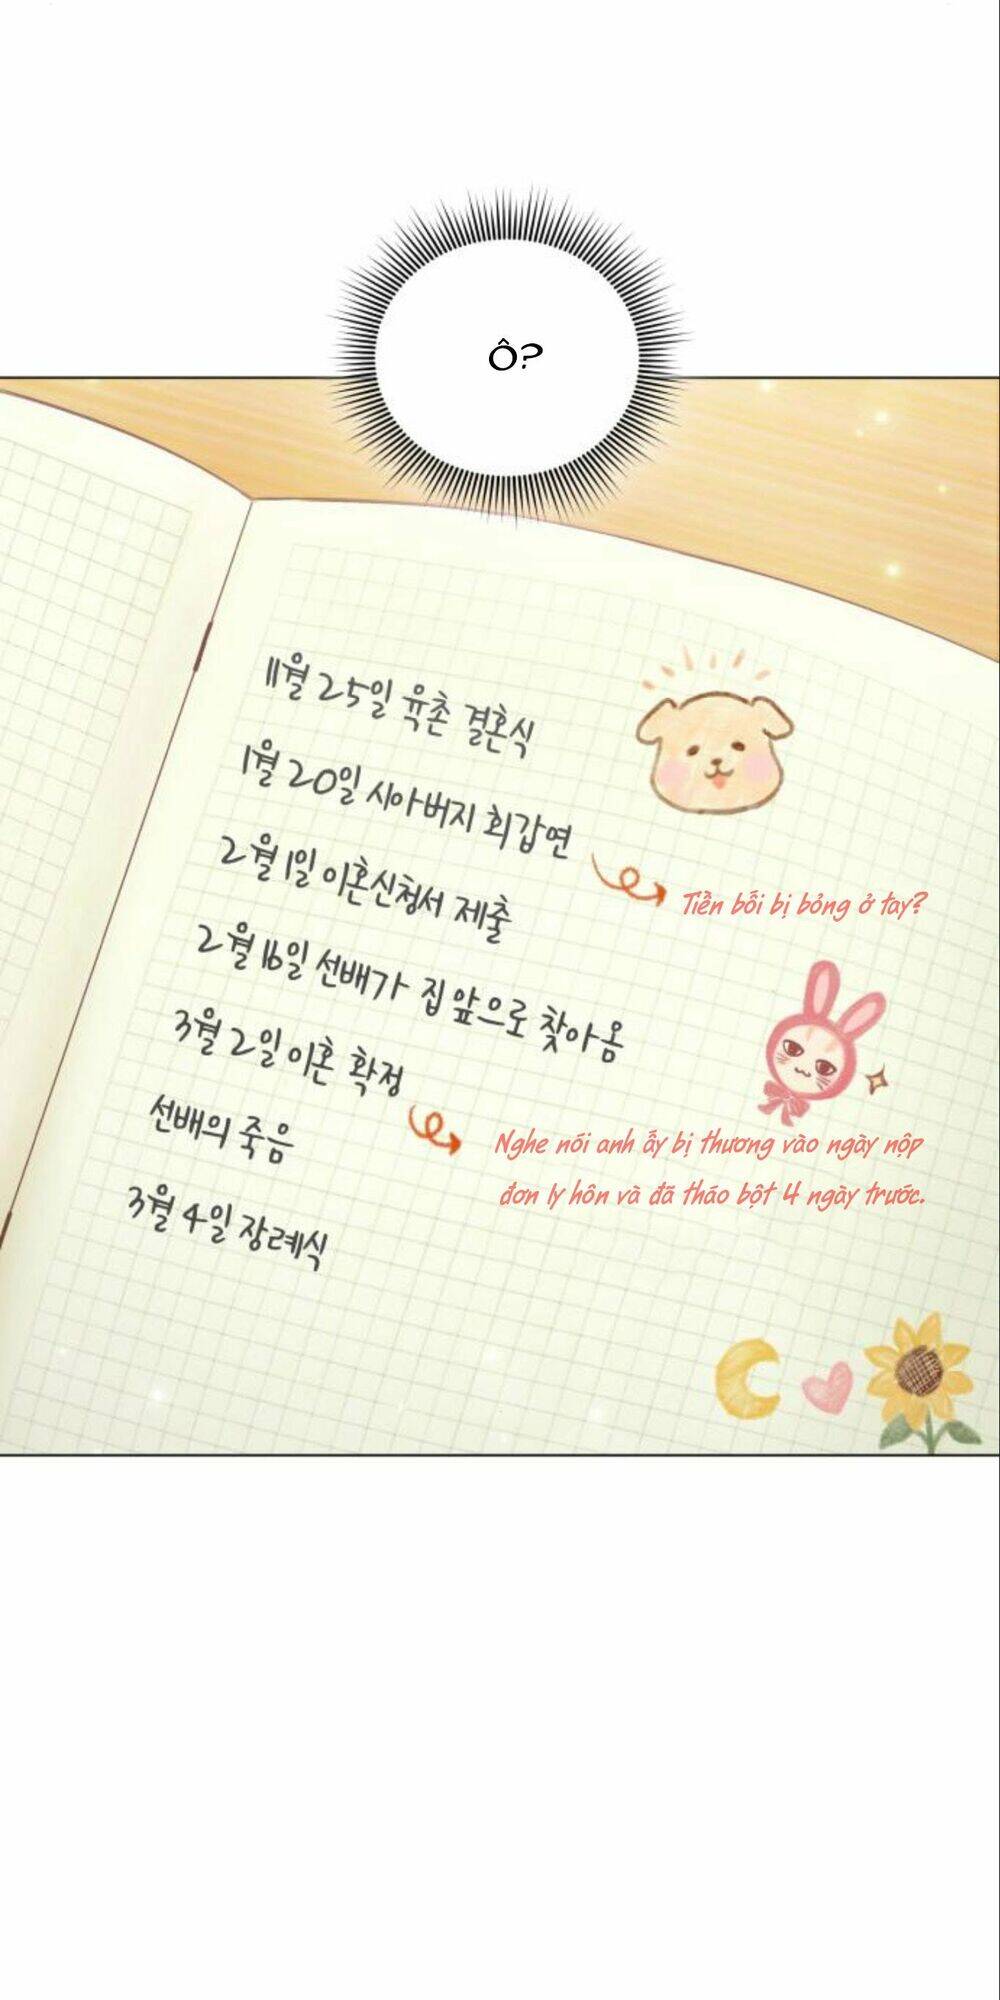 Ô?
11월 25일 육촌 결혼식
1월 20일 시아버지 회갑연
Tiền bối bị bỏng ở tay?
2월 1일 이혼신청서 제출
2월 16일 선배가 집 앞으로 찾아옴
3월 2일 이혼 확정
Nghe nói anh ấy bị thương vào ngày nộp
đơn ly hôn và đã tháo bột 4 ngày trước.
선배의 죽음
3월 4일 장례식